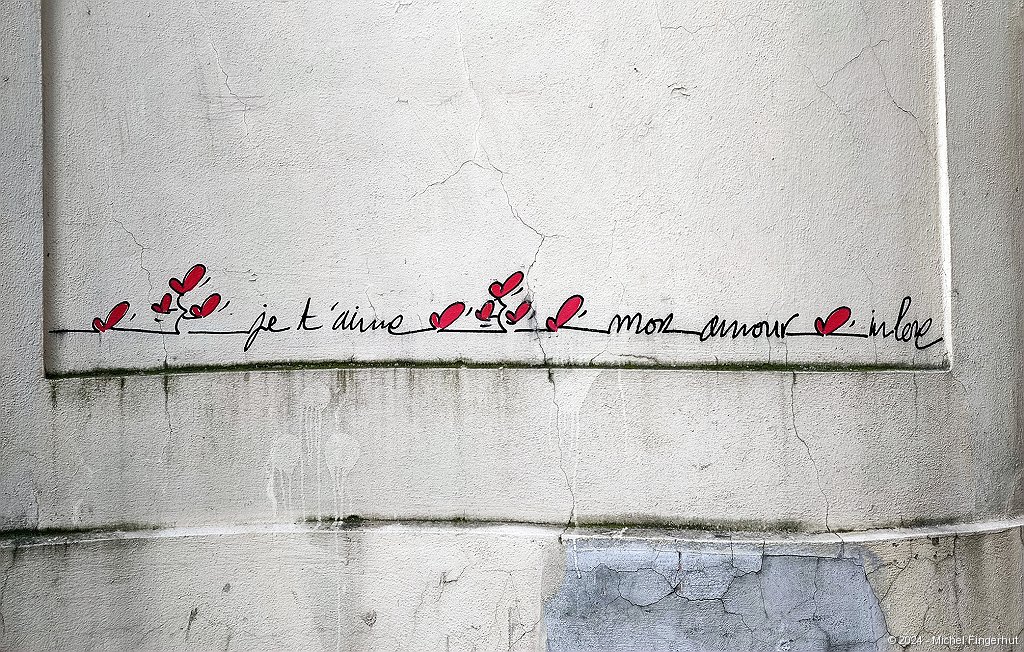 je t'aime mon amour in love
© 2024 - Michel Fingerhut